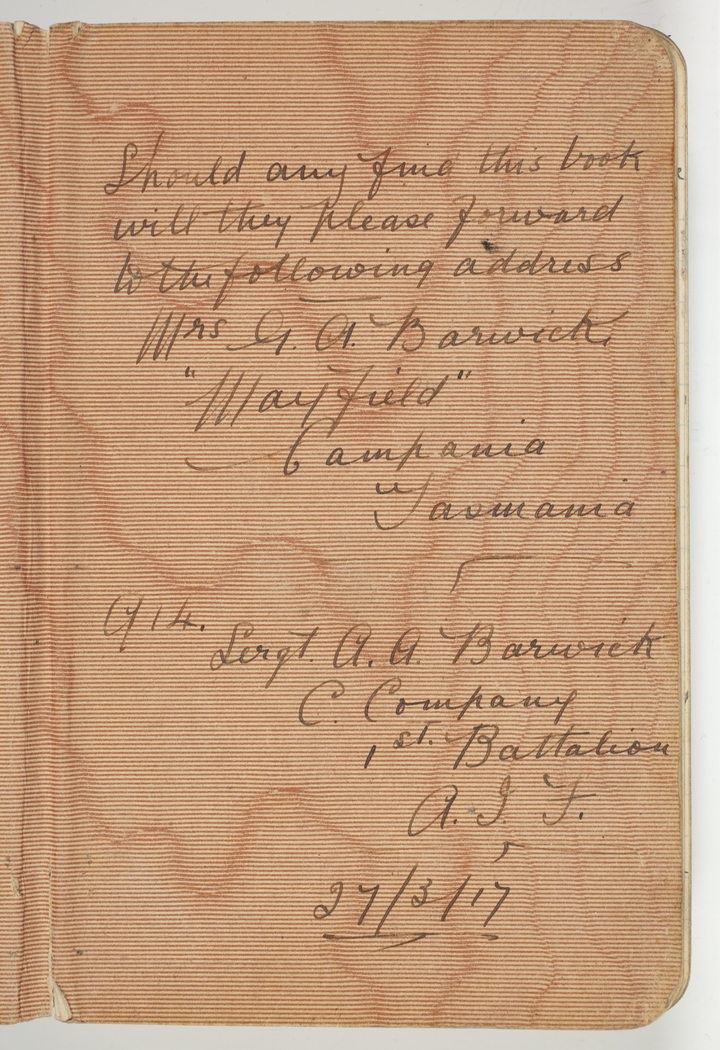 Should any find this book
will they please forward
to the following address
Mrs G. A. Barwick,
"Mayfield"
Campania
Tasmania
914.
Sergt. A. A. Barwick
C. Company
1st. Battalion
A. I. F.
27/3/17